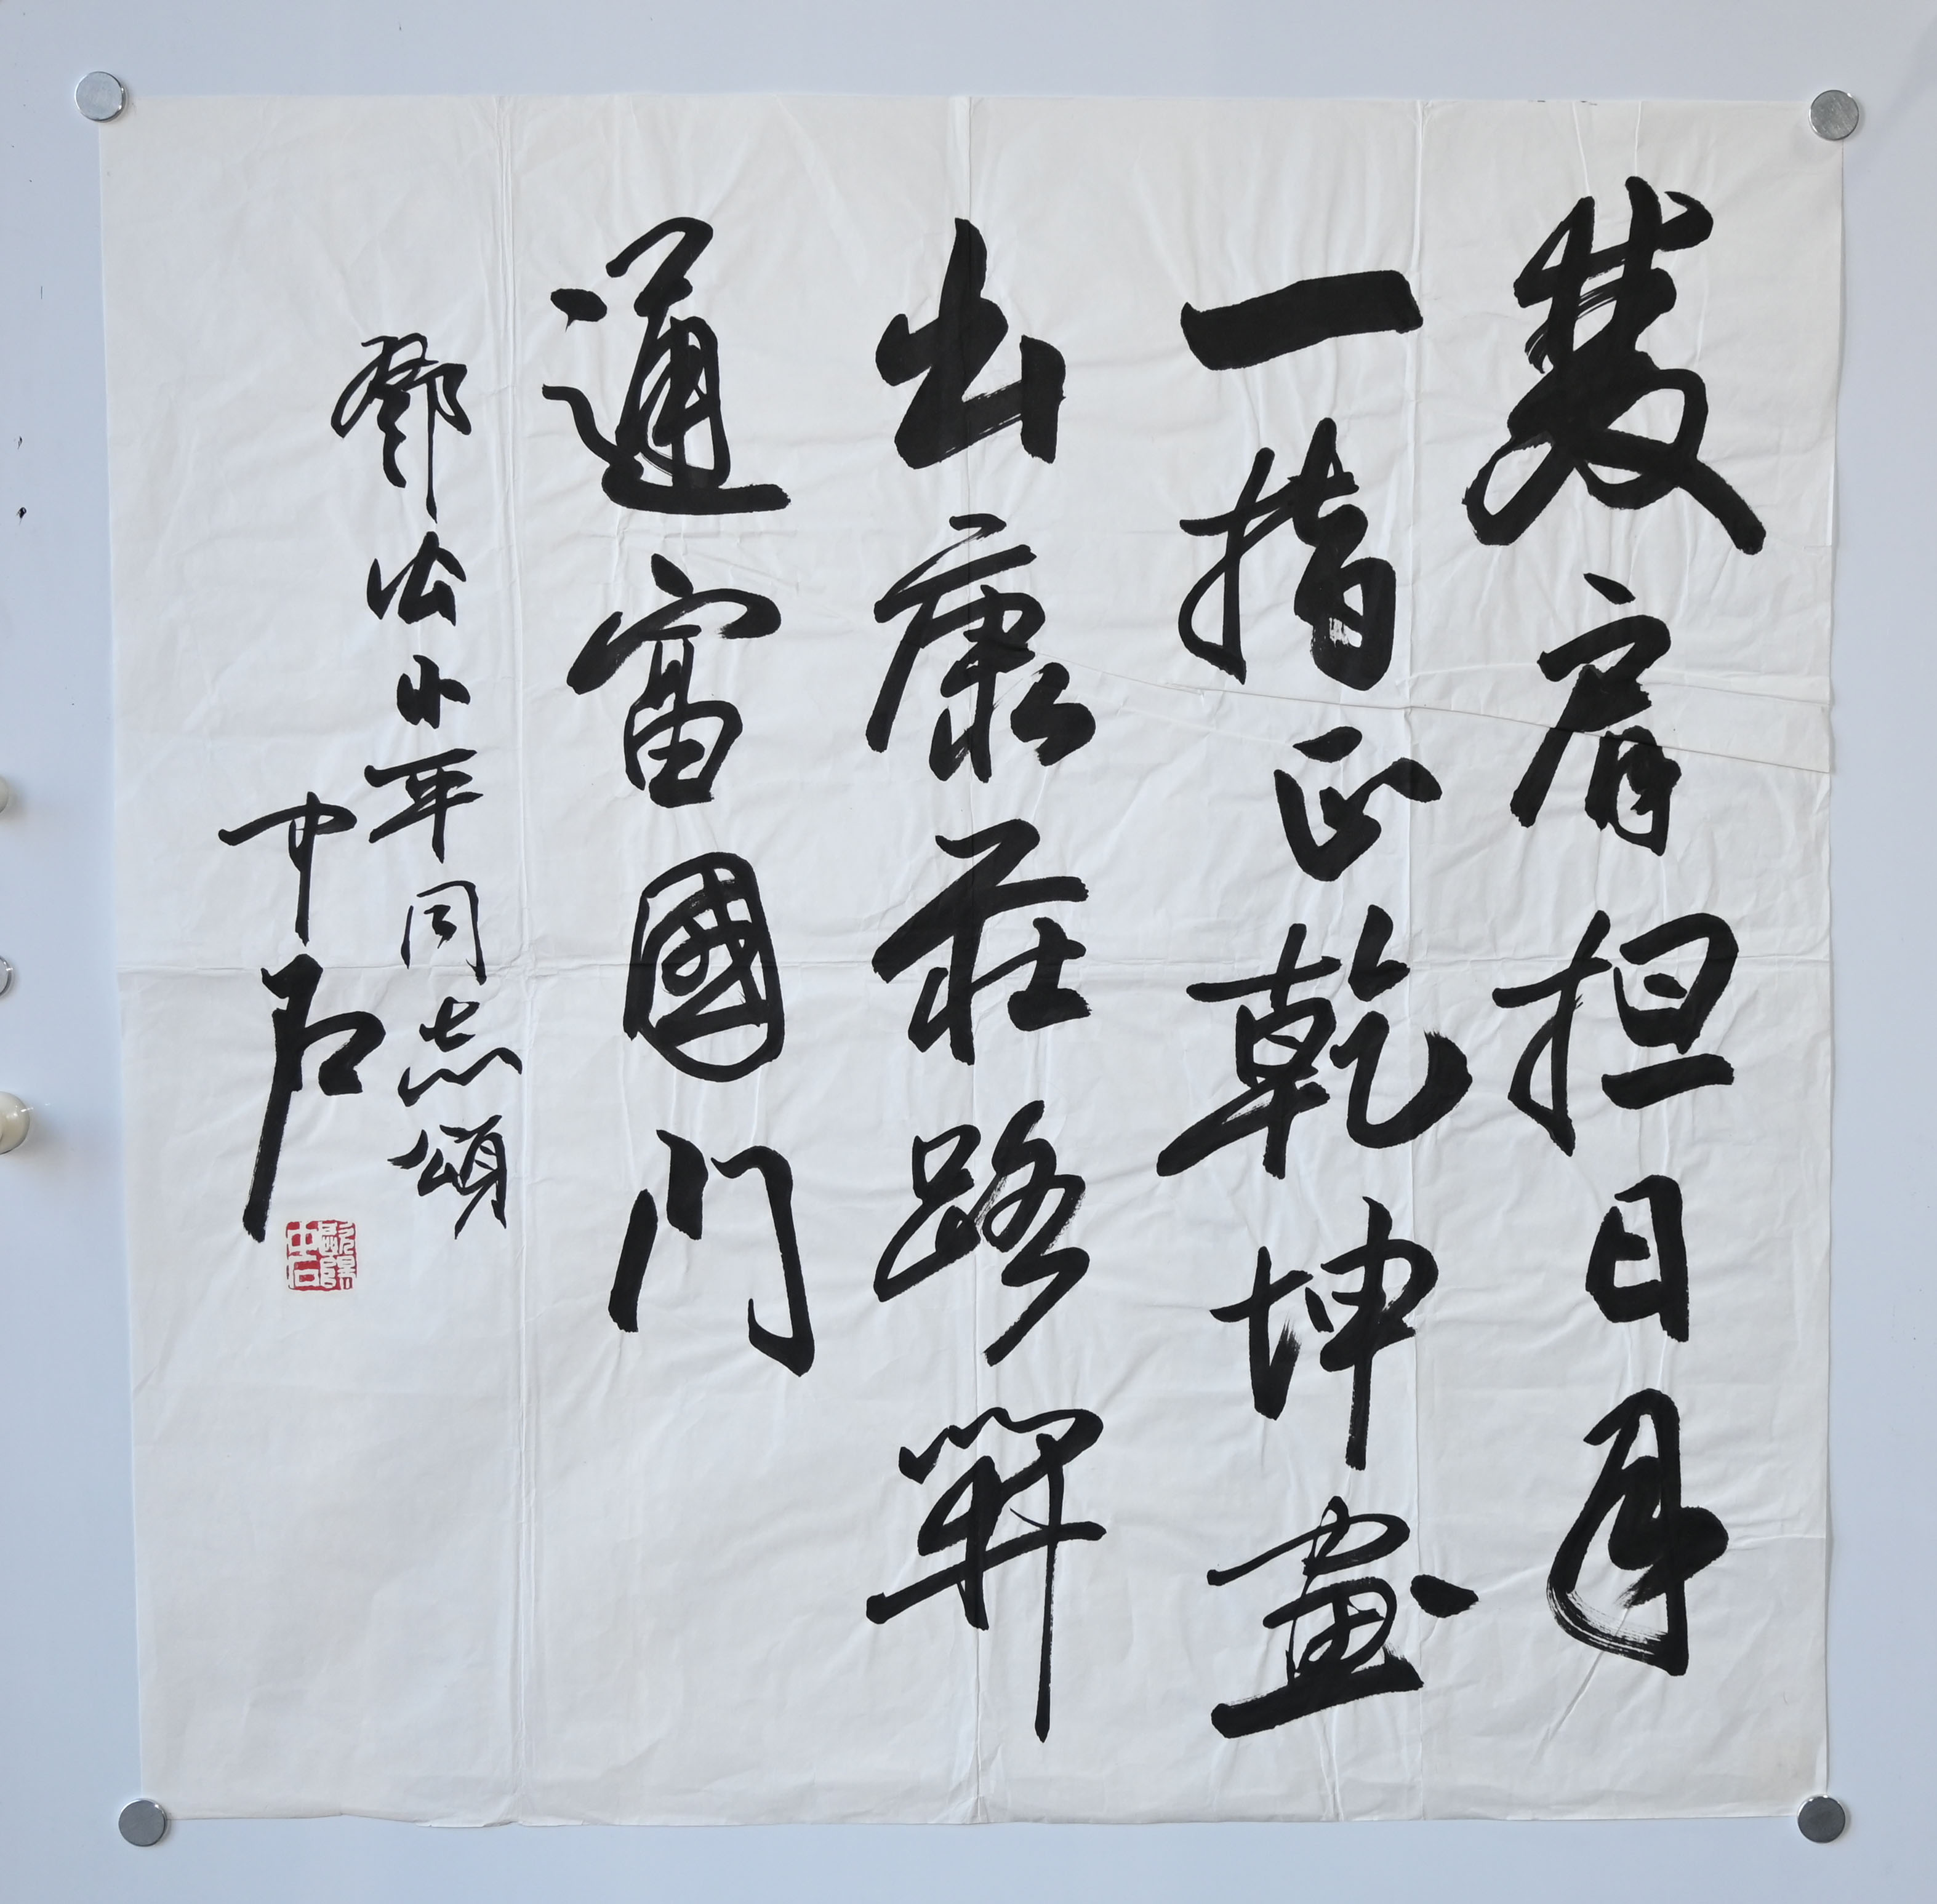 雙肩担日月
一指正乾坤畫
出康莊路開
通富國門
鄧公小平同志頌
中石
歐陽中石